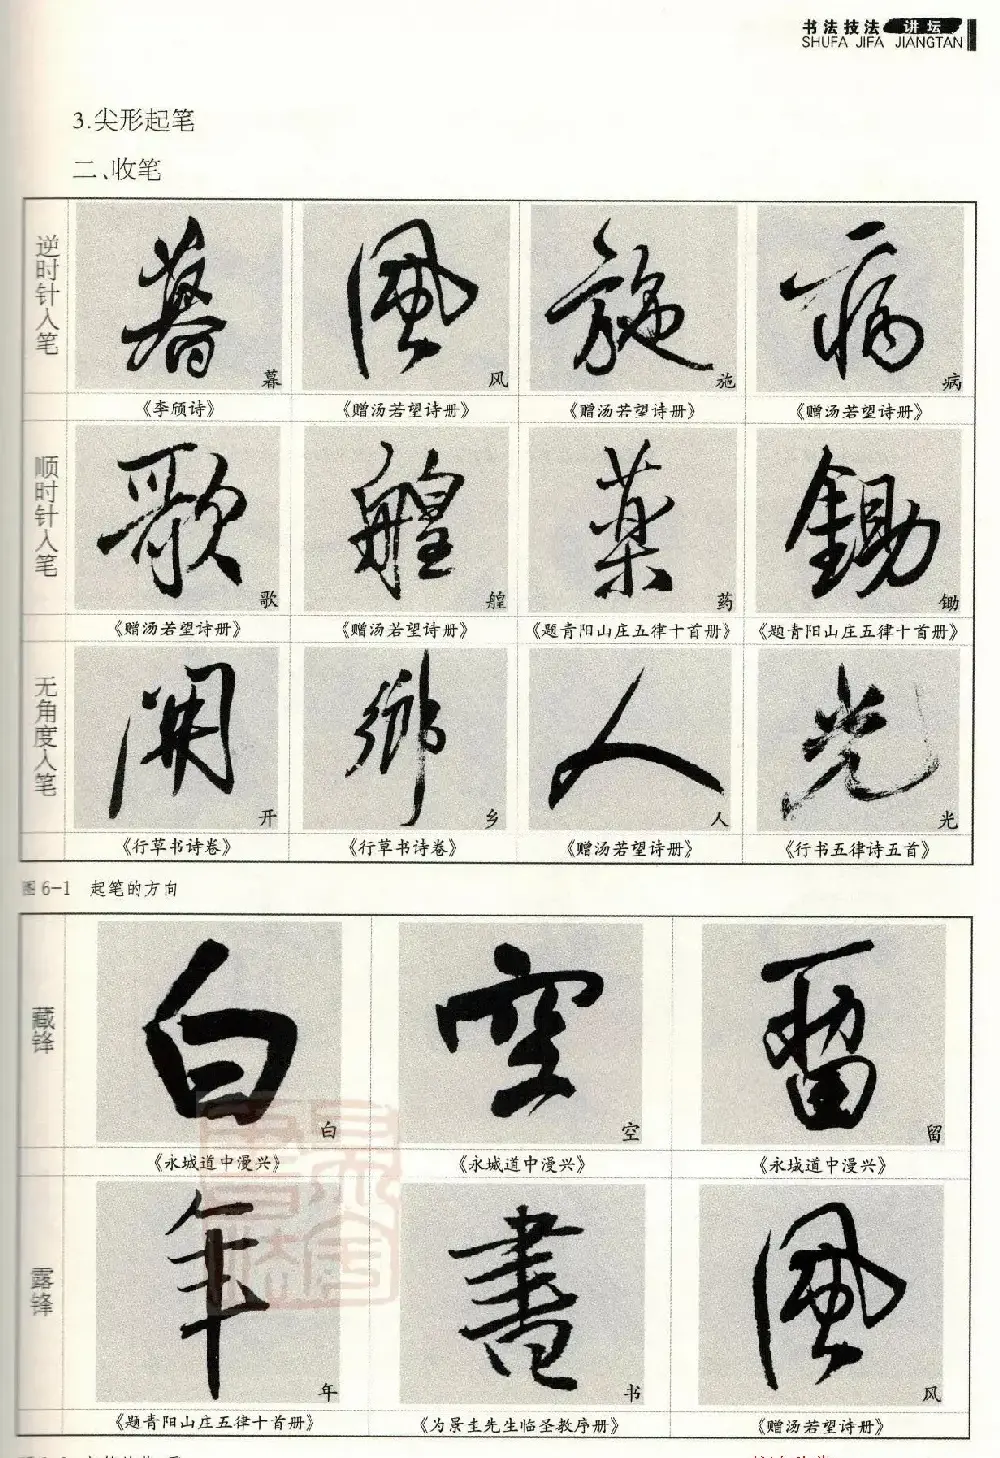 书法技法 讲坛
SHUFA JIFA JIANGTAN
3.尖形起笔
二、收笔
逆时针入笔
暮 风 施 病
《李颀诗》 《赠汤若望诗册》 《赠汤若望诗册》 《赠汤若望诗册》
顺时针入笔
歌 艎 药 锄
《赠汤若望诗册》 《赠汤若望诗册》 《题青阳山庄五律十首册》 《题青阳山庄五律十首册》
无角度入笔
开 乡 人 光
《行草书诗卷》 《行草书诗卷》 《赠汤若望诗册》 《行书五律诗五首》
图 6-1 起笔的方向
藏锋
白 空 留
《永城道中漫兴》 《永城道中漫兴》 《永城道中漫兴》
露锋
年 书 风
《题青阳山庄五律十首册》 《为景圭先生临圣教序册》 《赠汤若望诗册》